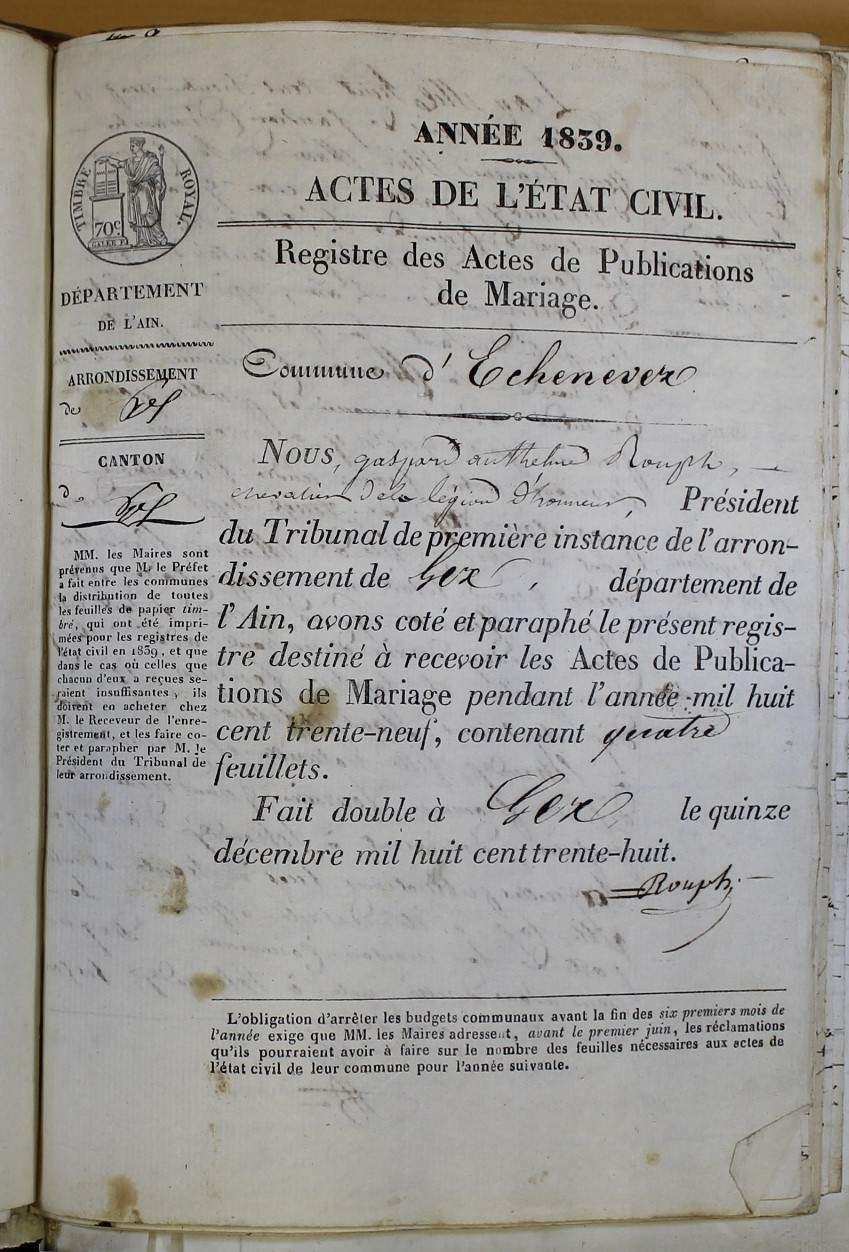 ANNÉE 1839.
ACTES DE L'ÉTAT CIVIL.
Registre des Actes de Publications
de Mariage.
TIMBRE ROYAL.
70c
DÉPARTEMENT
DE L'AIN.
ARRONDISSEMENT
de Gex
CANTON
de Gex
MM. les Maires sont
prévenus que M. le Préfet
a fait entre les communes
la distribution de toutes
les feuilles de papier tim-
bré, qui ont été impri-
mées pour les registres de
l'état civil en 1839, et que
dans le cas où celles que
chacun d'eux a reçues se-
raient insuffisantes, ils
doivent en acheter chez
M. le Receveur de l'enre-
gistrement, et les faire co-
ter et parapher par M. le
Président du Tribunal de
leur arrondissement.
Commune d'Echenevex
Nous, gaspard anthelme Rouph,
chevalier de la légion d'honneur, Président
du Tribunal de première instance de l'arron-
dissement de Gex, département de
l'Ain, avons coté et paraphé le présent regis-
tre destiné à recevoir les Actes de Publica-
tions de Mariage pendant l'année mil huit
cent trente-neuf, contenant quatre
feuillets.
Fait double à Gex, le quinze
décembre mil huit cent trente-huit.
Rouph
L'obligation d'arrêter les budgets communaux avant la fin des six premiers mois de
l'année exige que MM. les Maires adressent, avant le premier juin, les réclamations
qu'ils pourraient avoir à faire sur le nombre des feuilles nécessaires aux actes de
l'état civil de leur commune pour l'année suivante.